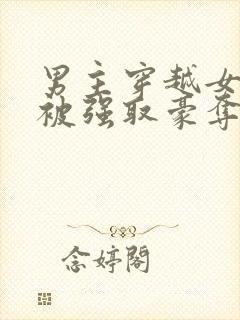 男主穿越女
被强取豪夺
念婷閣